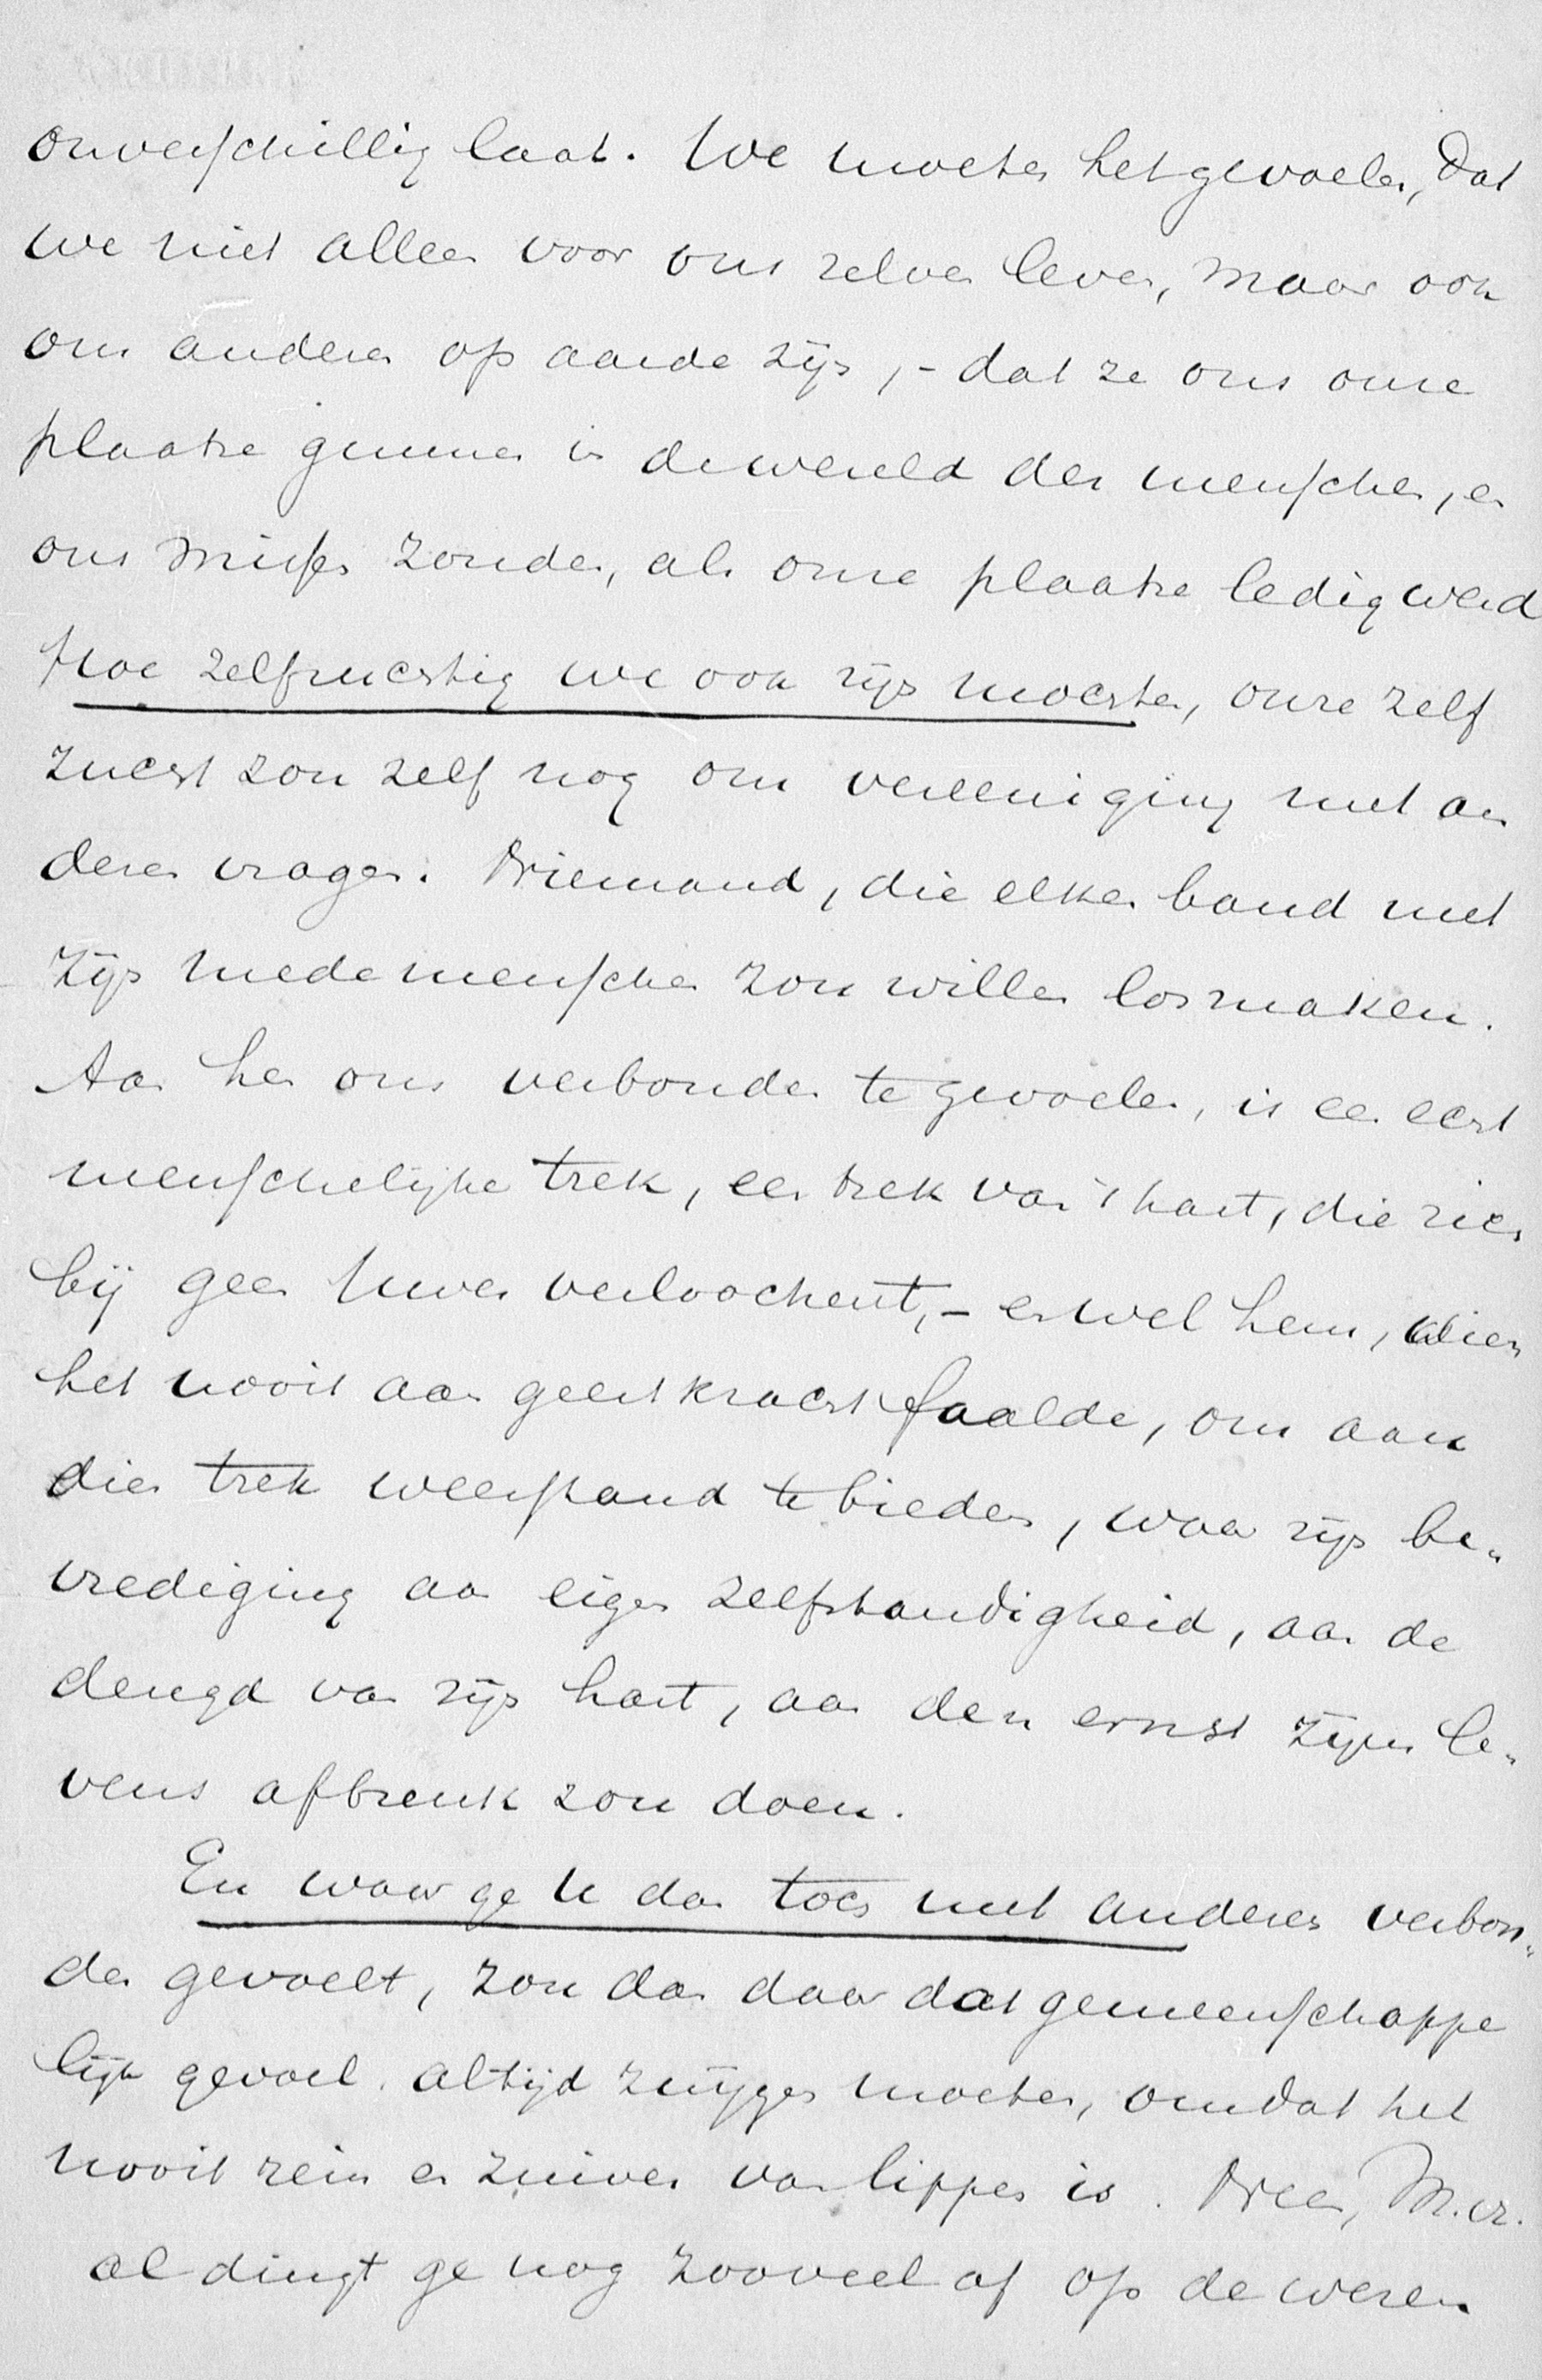 onverschillig laat. We moeten het gevoelen, dat
we niet alleen voor ons zelven leven, maar ook
om anderen op aarde zijn, - dat ze ons onze
plaatse gunnen in de wereld der menschen, en
ons missen zouden, als onze plaatse ledig werd
Hoe zelfzuchtig we ook zijn mochten, onze zelf
zucht zou zelf nog om vereeniging met an
deren vragen. Niemand, die elken band met
zijn medemenschen zou willen losmaken.
Aan hen ons verbonden te gevoelen, is een echt
menschelijke trek, een trek van 't hart, die zich
bij geen Uwer verloochent, - en wel hem, wien
het nooit aan geestkracht faalde, om aan
dien trek weerstand te bieden, waar zijn be„
vrediging aan eigen zelfstandigheid, aan de
deugd van zijn hart, aan den ernst zijns le„
vens afbreuk zou doen.
En waar ge U dan toch met anderen verbon„
den gevoelt, zou dan daar dat gemeenschappe
lijk gevoel altijd zwijgen moeten, omdat het
nooit rein en zuiver van lippen is. Neen, M.vr.
al dingt ge nog zooveel af op de weren